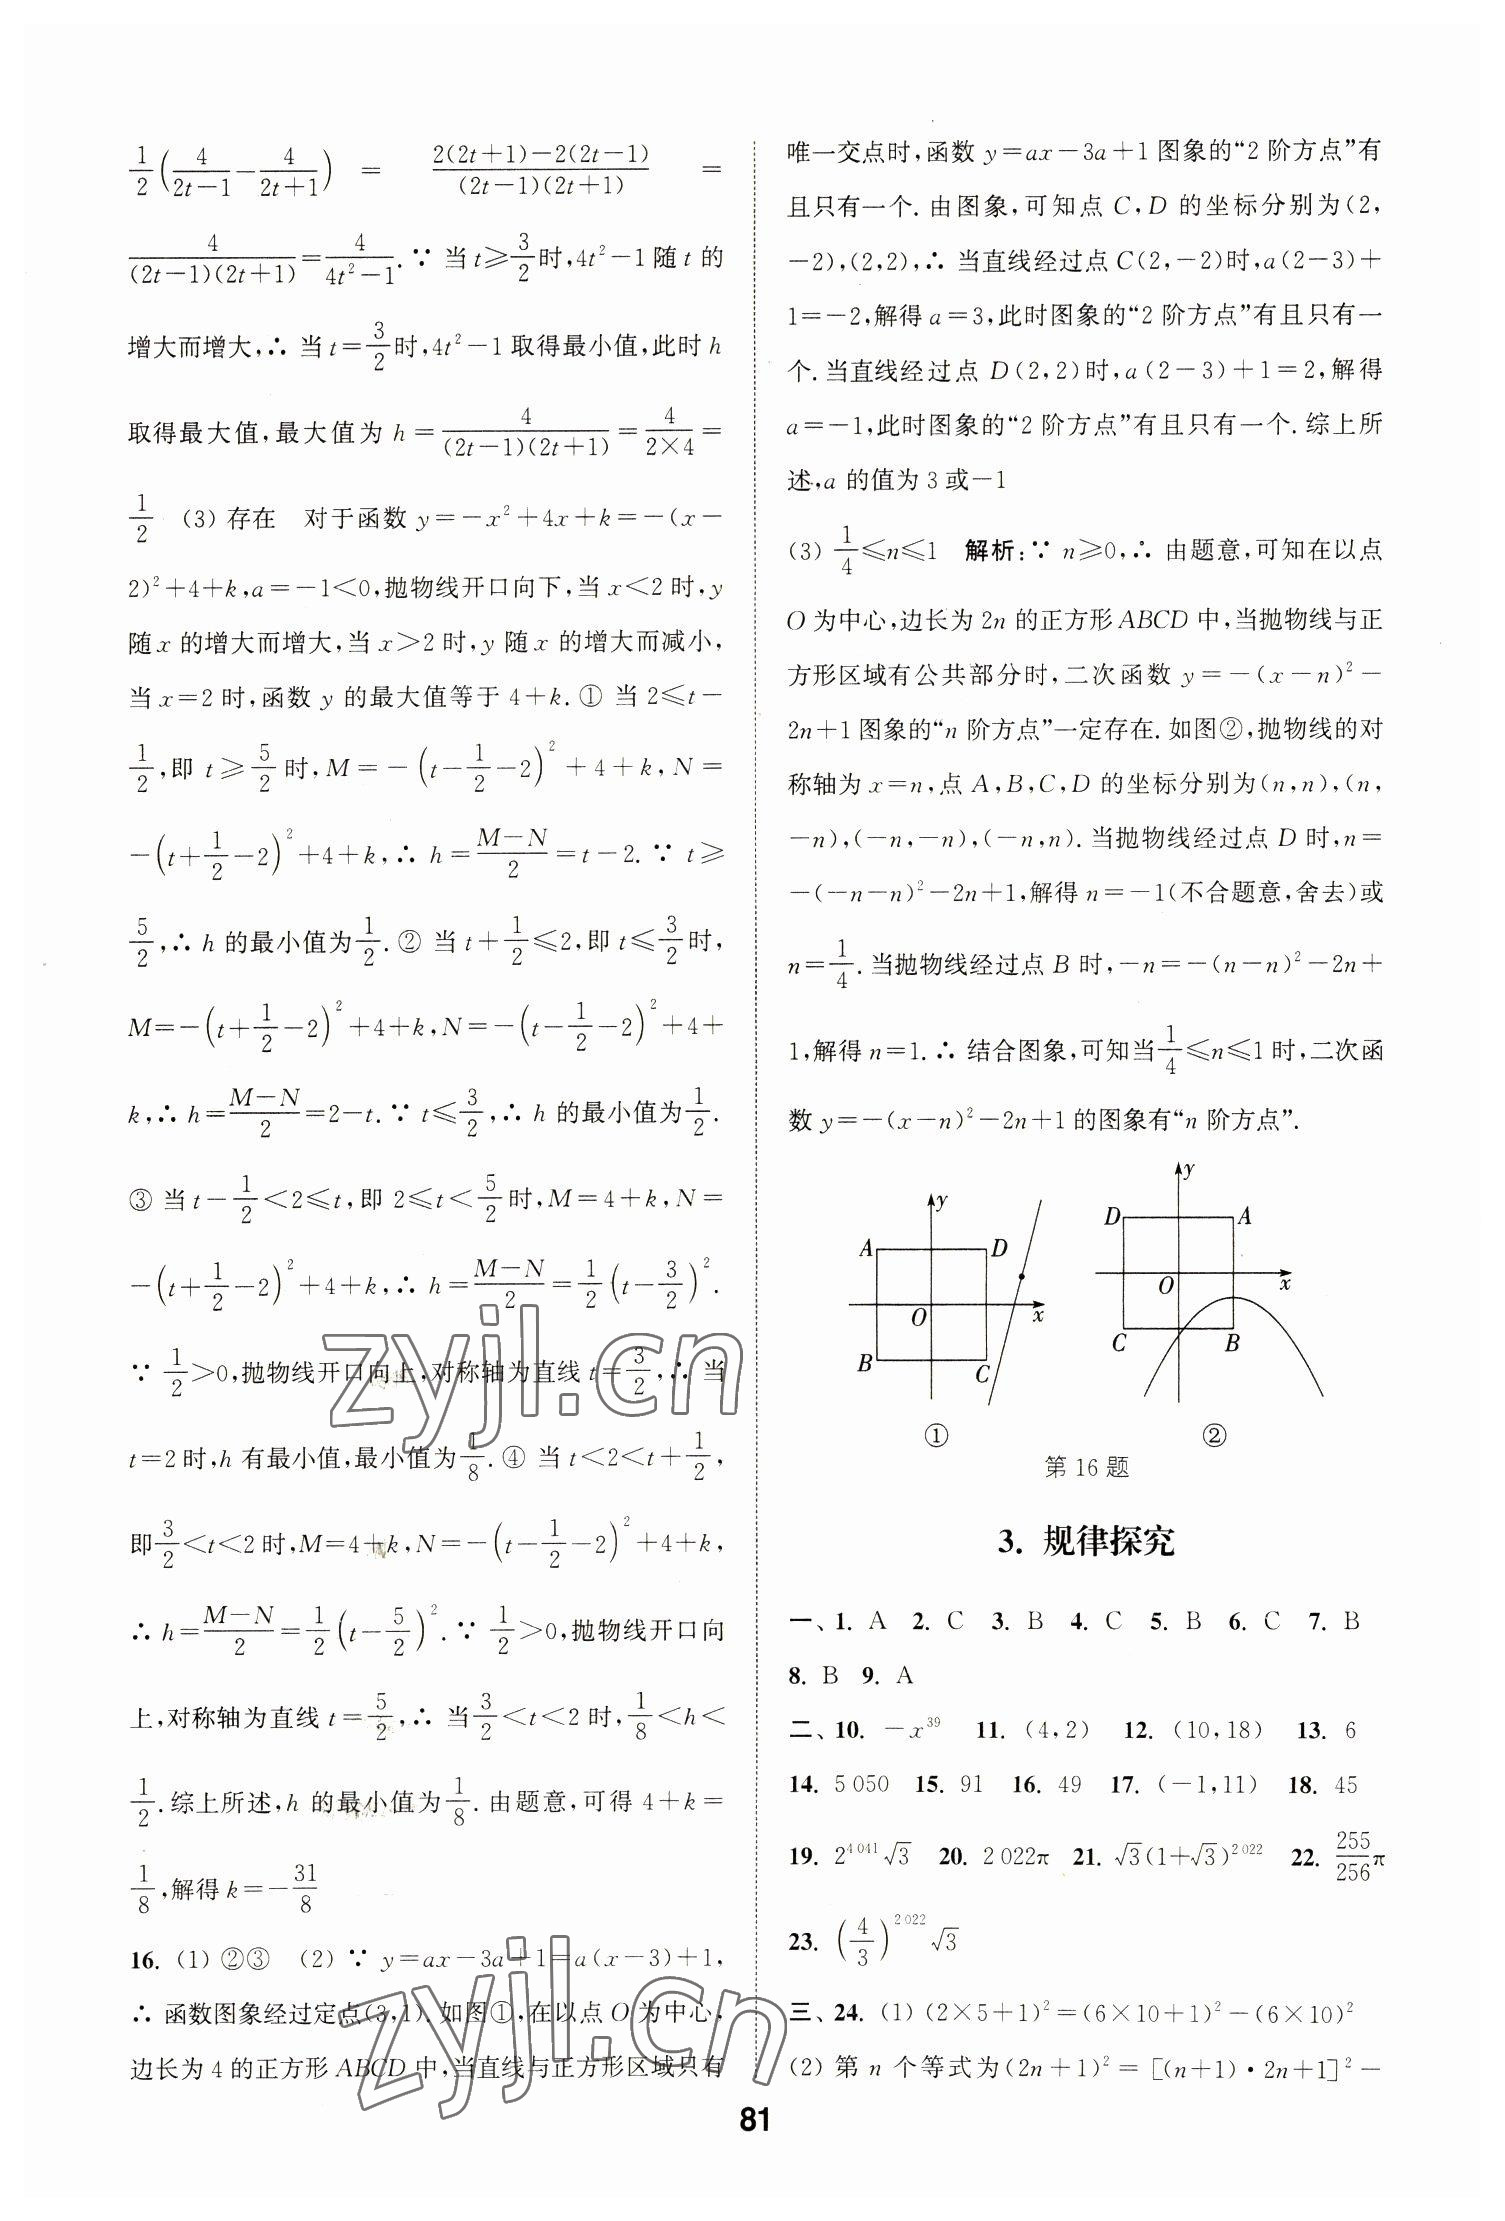 1/2(4/(2t−1)−4/(2t+1)) = (2(2t+1)−2(2t−1))/((2t−1)(2t+1)) =
4/((2t−1)(2t+1))=4/(4t²−1).∵ 当 t≥3/2时,4t²−1随 t 的
增大而增大,∴ 当 t=3/2时,4t²−1取得最小值,此时 h
取得最大值,最大值为 h=4/((2t−1)(2t+1))=4/(2×4)=
1/2 (3) 存在 对于函数 y=−x²+4x+k=−(x−
2)²+4+k,a=−1<0,抛物线开口向下,当 x<2时,y
随 x 的增大而增大,当 x>2时,y 随 x 的增大而减小,
当 x=2时,函数 y 的最大值等于 4+k.① 当 2≤t−
1/2,即 t≥5/2时,M=−(t−1/2−2)²+4+k,N=
−(t+1/2−2)²+4+k,∴ h=(M−N)/2=t−2.∵ t≥
5/2,∴ h 的最小值为1/2.② 当 t+1/2≤2,即 t≤3/2时,
M=−(t+1/2−2)²+4+k,N=−(t−1/2−2)²+4+
k,∴ h=(M−N)/2=2−t.∵ t≤3/2,∴ h 的最小值为1/2.
③ 当 t−1/2<2≤t,即 2≤t<5/2时,M=4+k,N=
−(t+1/2−2)²+4+k,∴ h=(M−N)/2=1/2(t−3/2)².
∵ 1/2>0,抛物线开口向上,对称轴为直线 t=3/2,∴ 当
t=2时,h 有最小值,最小值为1/8.④ 当 t<2<t+1/2,
即3/2<t<2时,M=4+k,N=−(t−1/2−2)²+4+k,
∴ h=(M−N)/2=1/2(t−5/2)².∵ 1/2>0,抛物线开口向
上,对称轴为直线 t=5/2,∴ 当3/2<t<2时,1/8<h<
1/2.综上所述,h 的最小值为1/8.由题意,可得 4+k=
1/8,解得 k=−31/8
16. (1) ②③ (2) ∵ y=ax−3a+1=a(x−3)+1,
∴ 函数图象经过定点(3,1).如图①,在以点 O 为中心,
边长为 4 的正方形 ABCD 中,当直线与正方形区域只有
唯一交点时,函数 y=ax−3a+1图象的“2阶方点”有
且只有一个.由图象,可知点 C,D 的坐标分别为(2,
−2),(2,2),∴ 当直线经过点 C(2,−2)时,a(2−3)+
1=−2,解得 a=3,此时图象的“2阶方点”有且只有一
个.当直线经过点 D(2,2)时,a(2−3)+1=2,解得
a=−1,此时图象的“2阶方点”有且只有一个.综上所
述,a 的值为 3 或−1
(3) 1/4≤n≤1 解析:∵ n≥0,∴ 由题意,可知在以点
O 为中心,边长为 2n 的正方形 ABCD 中,当抛物线与正
方形区域有公共部分时,二次函数 y=−(x−n)²−
2n+1图象的“n 阶方点”一定存在.如图②,抛物线的对
称轴为 x=n,点 A,B,C,D 的坐标分别为(n,n),(n,
−n),(−n,−n),(−n,n).当抛物线经过点 D 时,n=
−(−n−n)²−2n+1,解得 n=−1(不合题意,舍去)或
n=1/4.当抛物线经过点 B 时,−n=−(n−n)²−2n+
1,解得 n=1.∴ 结合图象,可知当1/4≤n≤1时,二次函
数 y=−(x−n)²−2n+1的图象有“n 阶方点”.
y
A
D
O
x
B
C
①
y
D
A
O
x
C
B
②
第16题
3. 规律探究
一、1. A 2. C 3. B 4. C 5. B 6. C 7. B
8. B 9. A
二、10. −x³⁹ 11. (4,2) 12. (10,18) 13. 6
14. 5 050 15. 91 16. 49 17. (−1,11) 18. 45
19. 2⁴ ⁰⁴¹√3 20. 2 022π 21. √3(1+√3)² ⁰²² 22. 255/256π
23. (4/3)² ⁰²²√3
三、24. (1) (2×5+1)²=(6×10+1)²−(6×10)²
(2) 第 n 个等式为(2n+1)²=[(n+1)·2n+1]²−
81
zyjl.cn
zyjl.cn